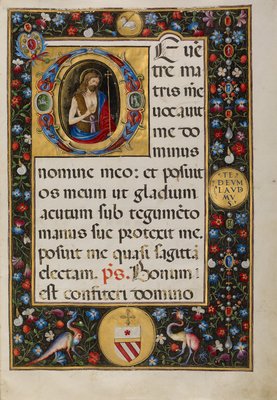 DE uē
tre ma
tris me
uocauit
me do
minus
nomine meo: et posuit
os meum ut gladium
acutum sub tegumēto
manus sue protexit me.
posuit me quasi sagittā
electam. ps. Bonum
est confiteri domino
TE
DEVM
LAVD
MVS